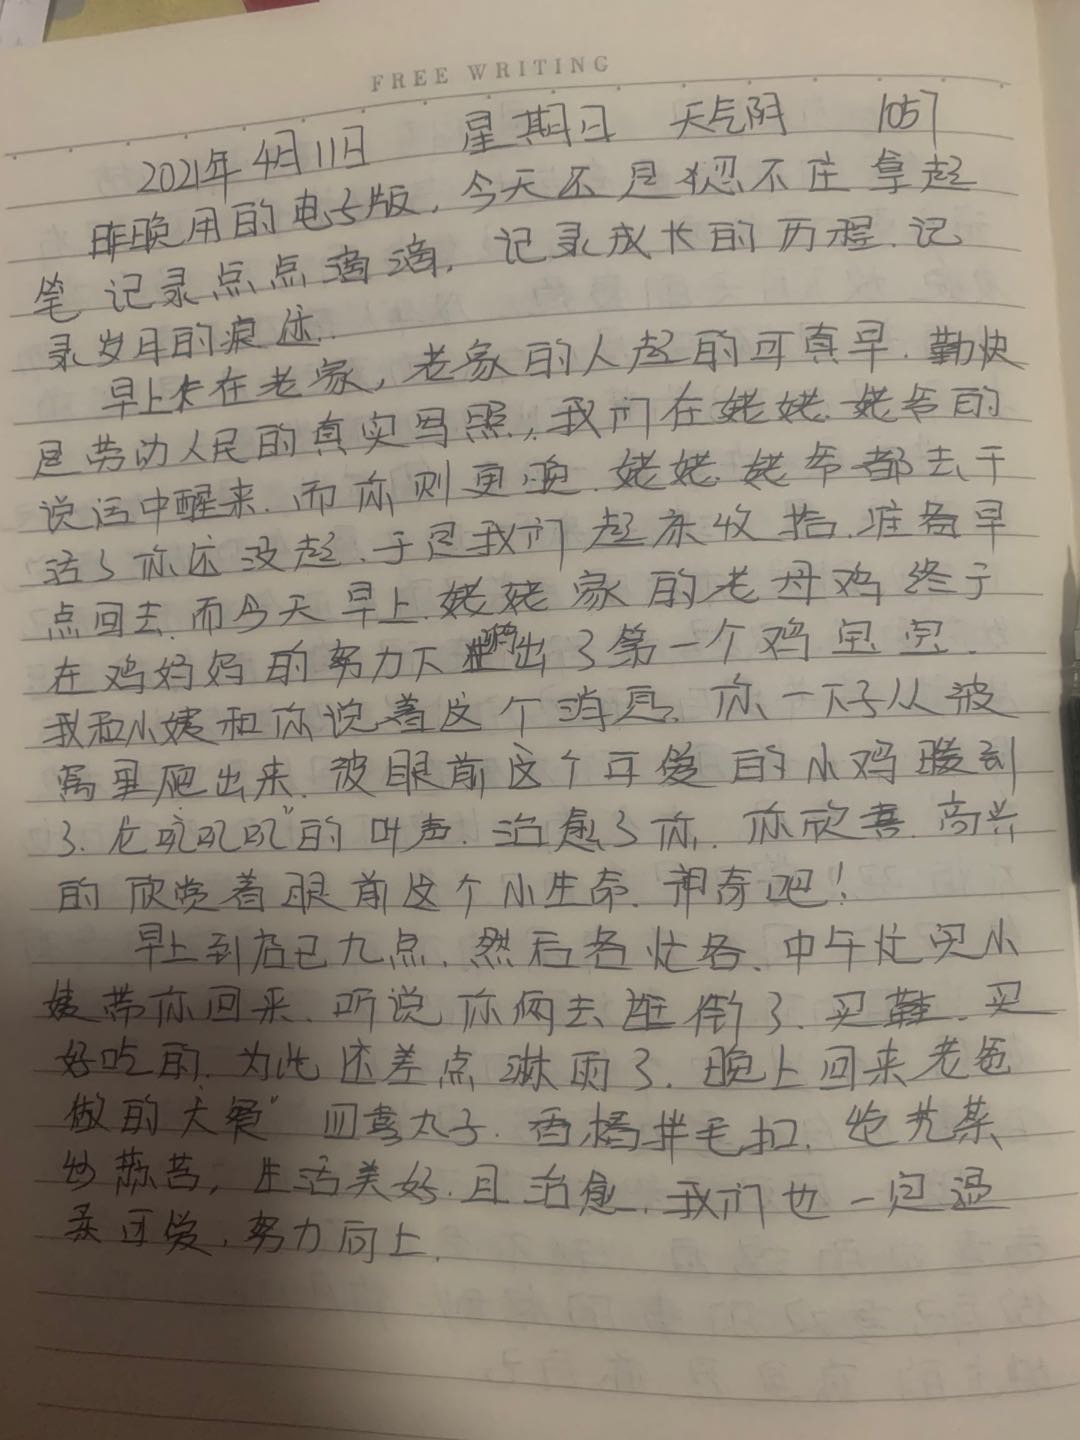 FREE WRITING
2021年4月11日 星期日 天气阴 1057
昨晚用的电子版,今天还是忍不住拿起
笔记录点点滴滴,记录成长的历程.记
录岁月的痕迹.
早上在老家,老家的人起的可真早.勤快
是劳动人民的真实写照,我们在姥姥.姥爷的
说话中醒来.而你则更晚.姥姥.姥爷都去干
活了你还没起.于是我们起床收拾.准备早
点回去.而今天早上.姥姥家的老母鸡终于
在鸡妈妈的努力下出了第一个鸡宝宝.
我和小姨和你说着这个消息.你一下子从被
窝里爬出来.被眼前这个可爱的小鸡暖到
了.叽叽叽"的叫声.治愈了你.你欣喜.高兴
的欣赏着眼前这个小生命.神奇吧!
早上到店已九点.然后各忙各.中午忙完小
姨带你回来.听说你俩去逛街了.买鞋.买
好吃的.为此还差点淋雨了.晚上回来老爸
做的"大餐"四喜丸子.香拌毛扣.菜
炒蒜苔,生活美好.且治愈.我们也一定温
柔可爱.努力向上.